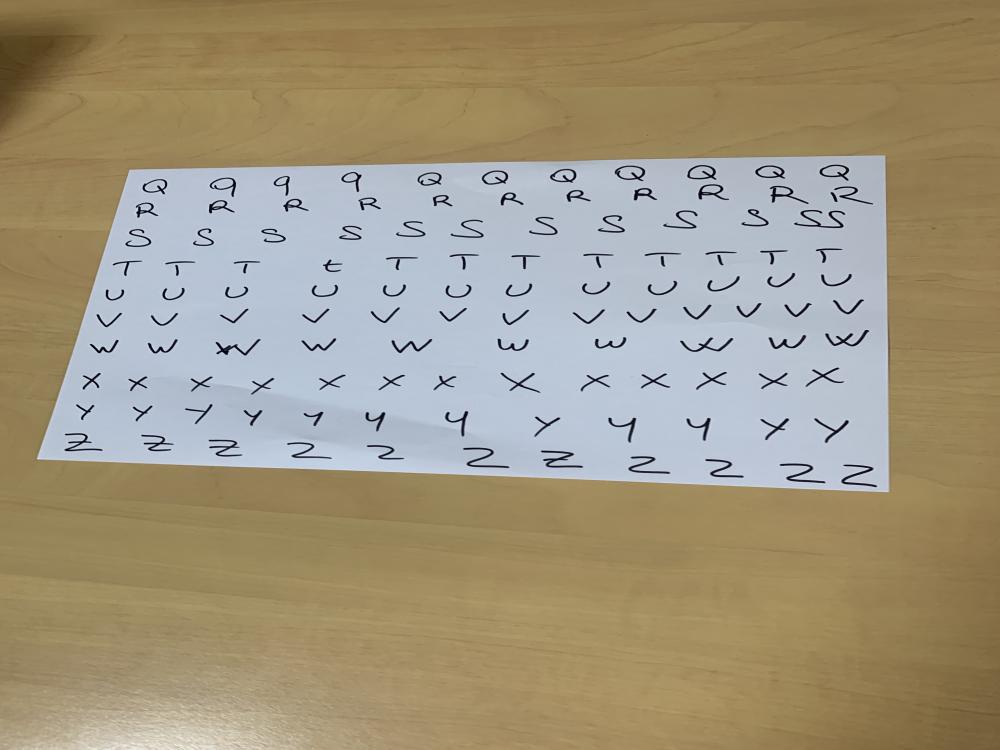 Q q q q Q Q Q Q Q Q Q
R R R R R R R R R R R
S S S S S S S S S S SS
T T T t T T T T T T T T
U U U U U U U U U U U U
V V V V V V V V V V V V V
W W W W W W W W W W
X X X X X X X X X X X X X
Y Y Y Y Y Y Y Y Y Y Y Y
Z Z Z Z Z Z Z Z Z Z Z